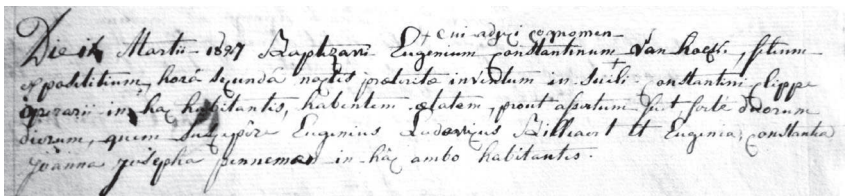 + cui adjeci cognomen
Die ix Martii 1827 Baptizavi Eugenium Constantinum + Van hoeck, filium
expositium, hora secunda noctis preterita inventum in Constantini Clippe
operarii in hac habitantis, habentem ætatem, prout assertum fuit forte duorum
dierum, quem Suscepere Eugenius Ludovicus Billiaert et Eugenia, Constantia
Joanna Josepha Penneman in hac ambo habitantes.